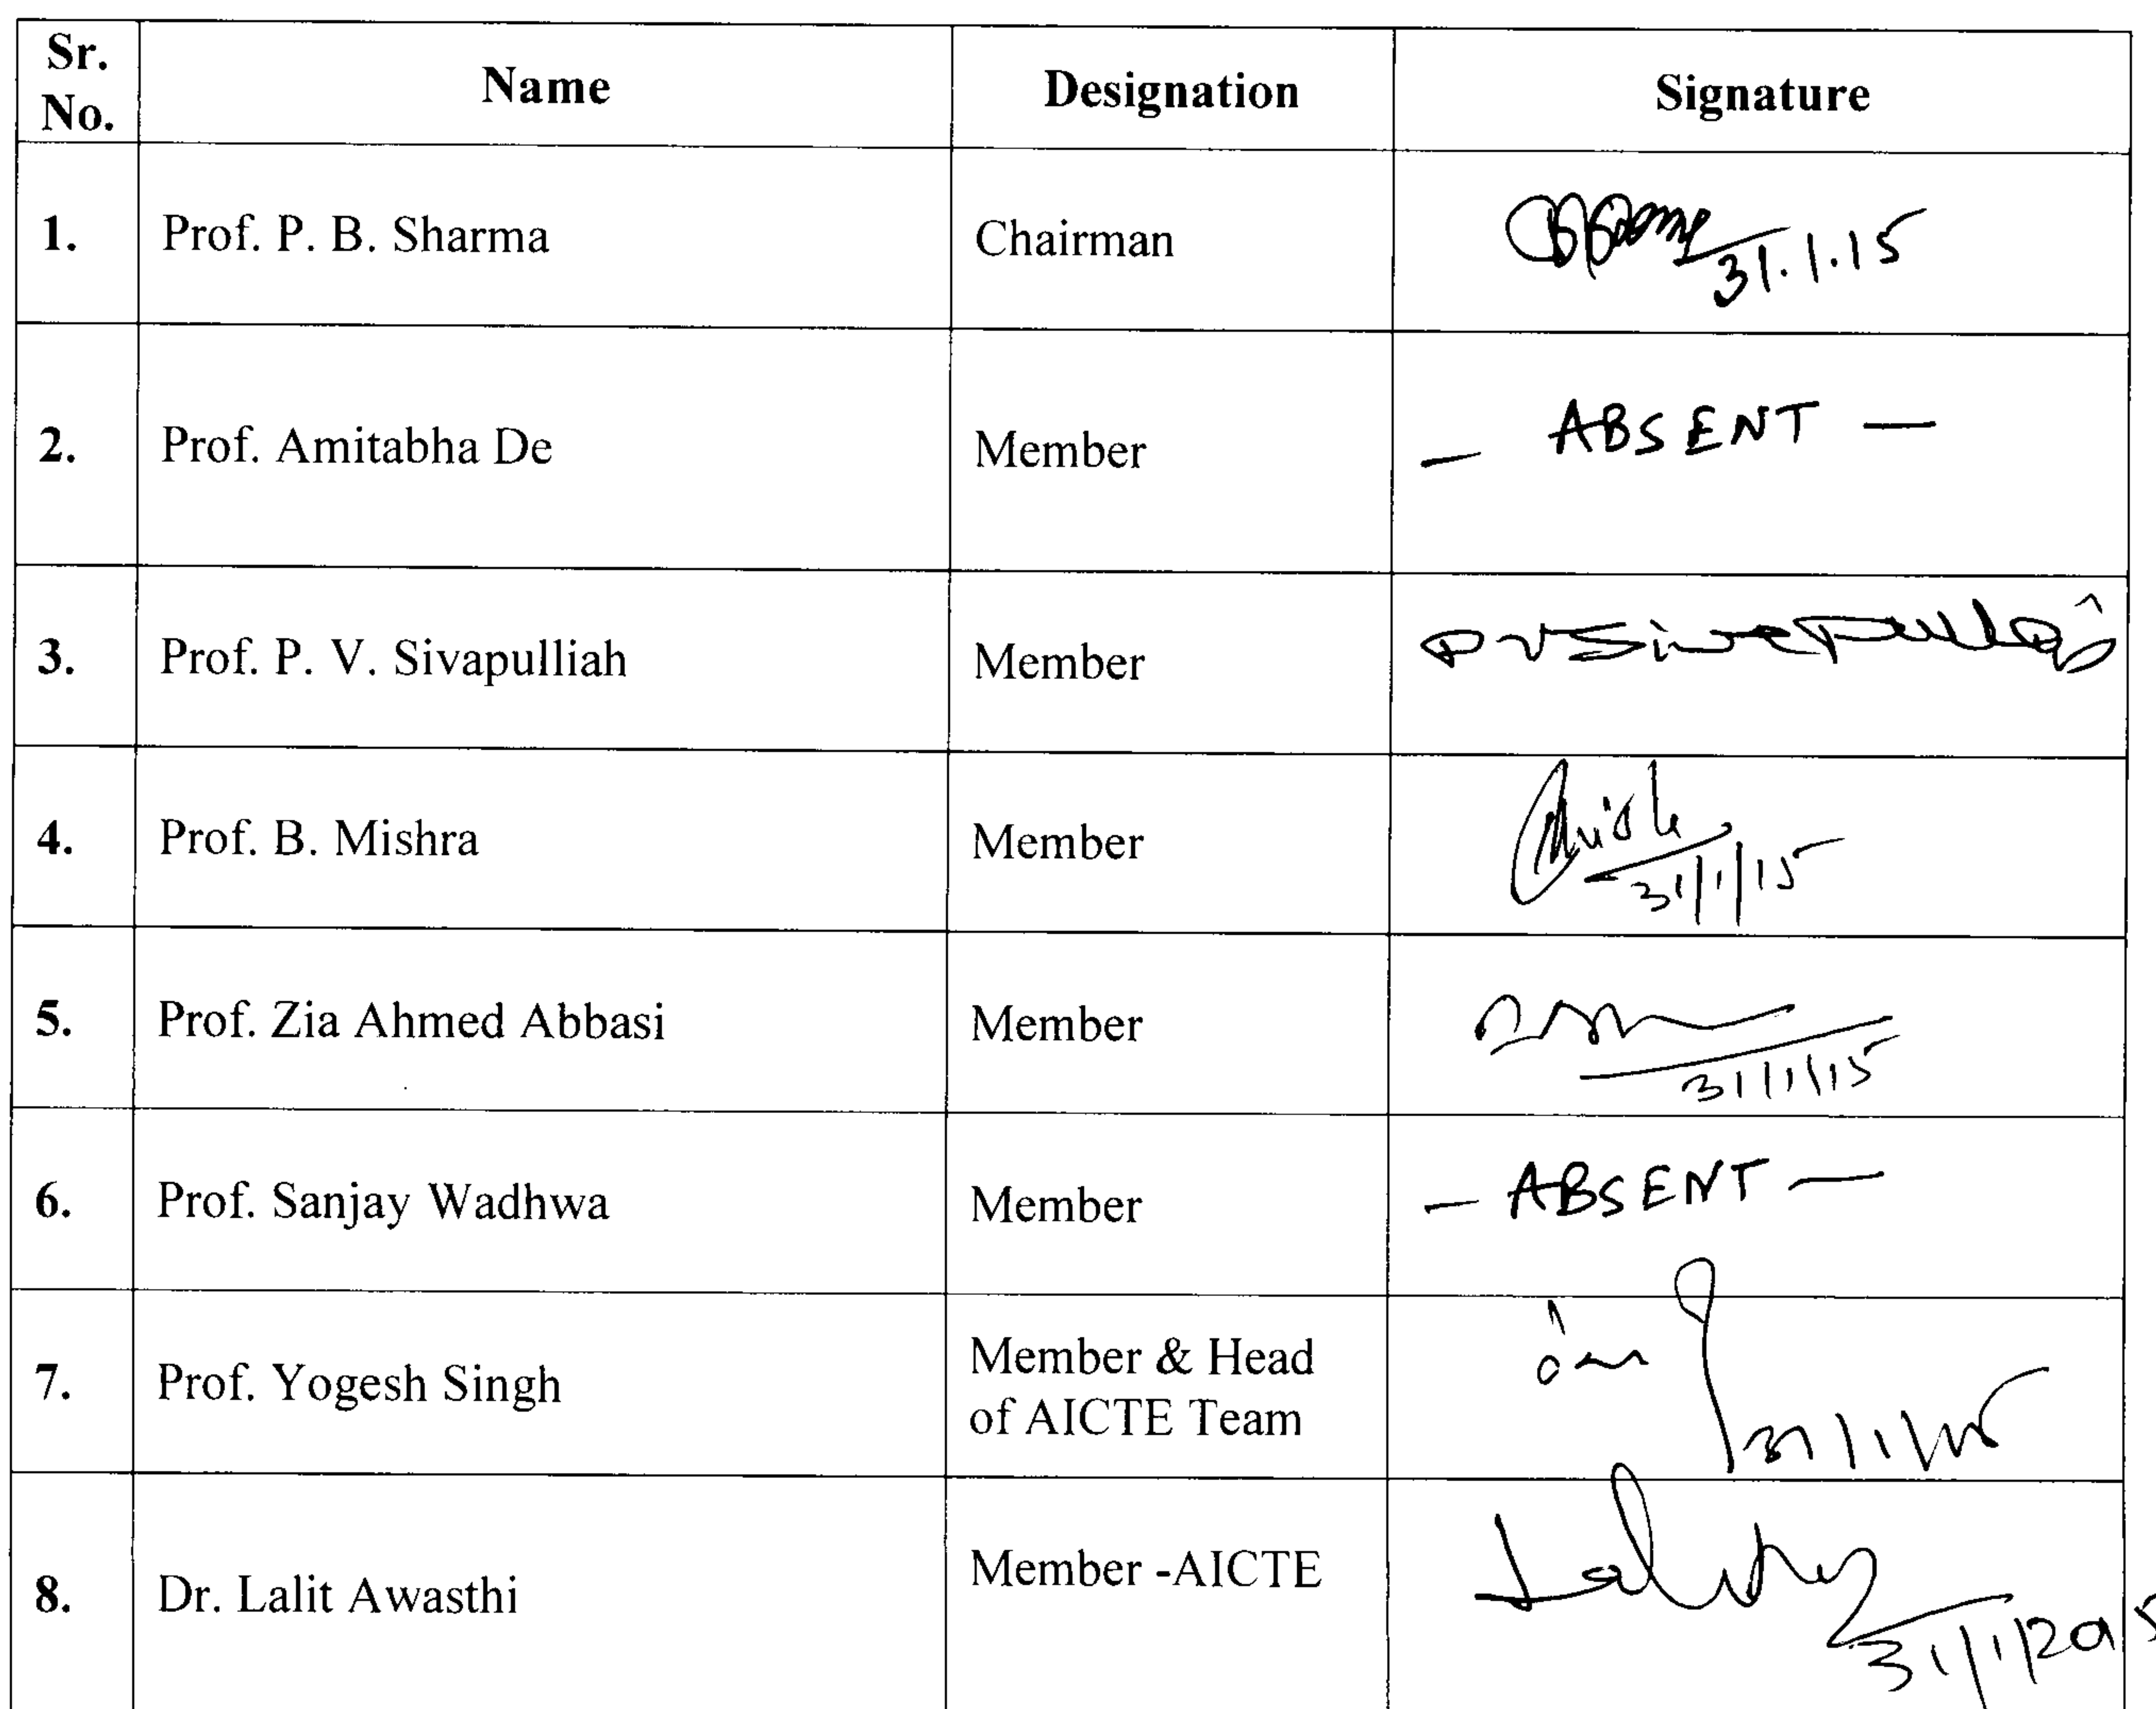 Sr. No. Name Designation Signature
1. Prof. P. B. Sharma Chairman 31.1.15
2. Prof. Amitabha De Member — ABSENT —
3. Prof. P. V. Sivapulliah Member P V Sivapullai
4. Prof. B. Mishra Member 31/1/15
5. Prof. Zia Ahmed Abbasi Member 31/1/15
6. Prof. Sanjay Wadhwa Member — ABSENT —
7. Prof. Yogesh Singh Member & Head of AICTE Team 31/1/15
8. Dr. Lalit Awasthi Member -AICTE 31/1/2015